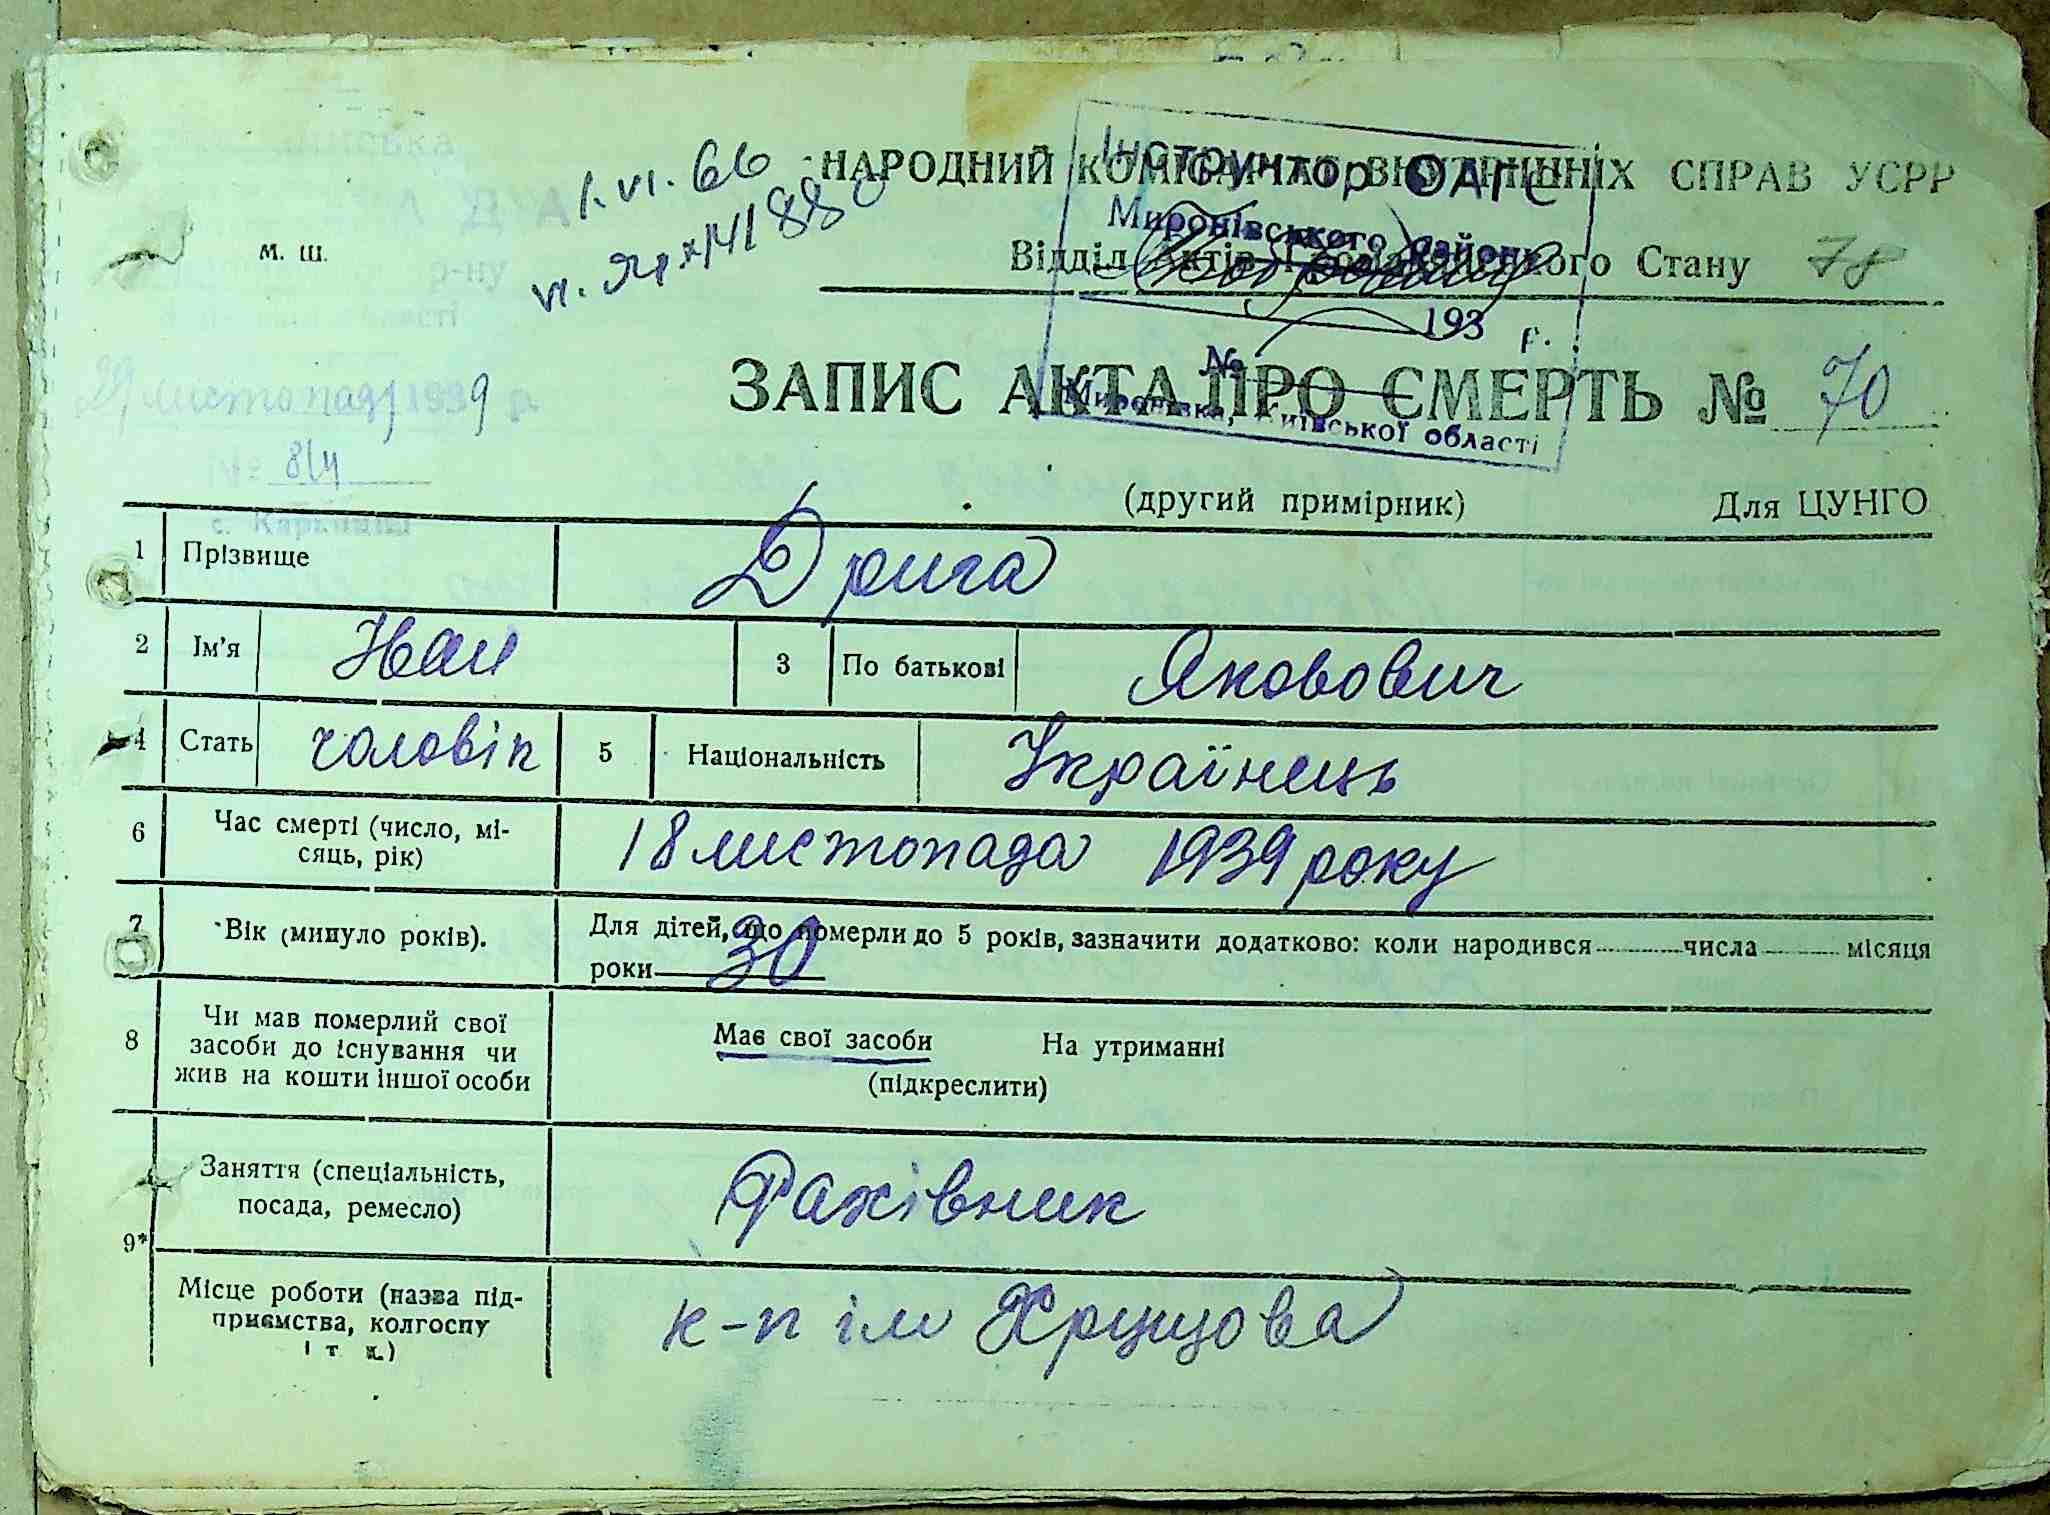 1. VI. 66
НАРОДНИЙ КОМІСАРІАТ ВНУТРІШНІХ СПРАВ УСРР
Інструктор ОАГС
Миронівського району
м. ш.
Відділ Актів Громадянського Стану 78
193 р.
№
Миронівка, Київської області
ЗАПИС АКТА ПРО СМЕРТЬ № 70
29 листопада 1939 р.
№ 8/4
(другий примірник) Для ЦУНГО
1 Прізвище Дрига
2 Ім'я Иван 3 По батькові Якович
4 Стать чоловік 5 Національність Українець
6 Час смерті (число, мі-
сяць, рік) 18 листопада 1939 року
7 Вік (минуло років). Для дітей, що померли до 5 років, зазначити додатково: коли народився числа місяця
роки 30
8 Чи мав померлий свої
засоби до існування чи
жив на кошти іншої особи
Має свої засоби На утриманні
(підкреслити)
9* Заняття (спеціальність,
посада, ремесло) Фахівник
Місце роботи (назва під-
приємства, колгоспу
і т. д.) к-п ім Хрущова